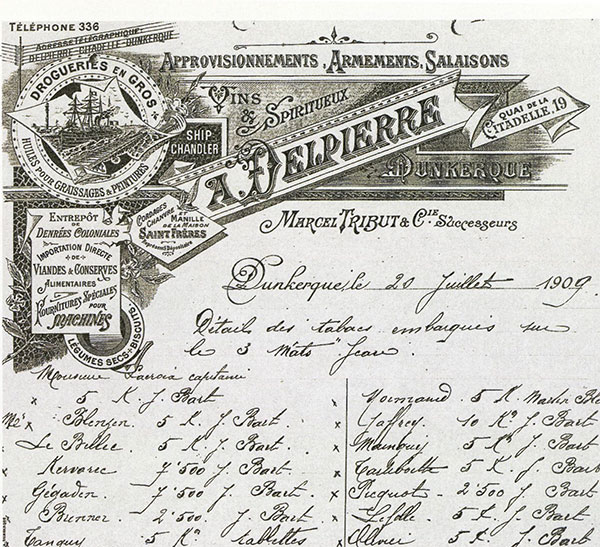 TÉLÉPHONE 336
ADRESSE TÉLÉGRAPHIQUE
DELPIERRE-CITADELLE-DUNKERQUE
APPROVISIONNEMENTS, ARMEMENTS, SALAISONS
DROGUERIES EN GROS
HUILES POUR GRAISSAGES & PEINTURES
VINS & SPIRITUEUX
SHIP CHANDLER
A. DELPIERRE
QUAI DE LA CITADELLE, 19
DUNKERQUE
CORDAGES CHANVRE & MANILLE DE LA MAISON
SAINT FRÈRES
MARCEL TRIBUT & CIE Successeurs
ENTREPÔT
DE
DENRÉES COLONIALES
IMPORTATION DIRECTE
DE
VIANDES & CONSERVES
ALIMENTAIRES
FOURNITURES SPÉCIALES
POUR
MACHINES
LÉGUMES SECS & BISCUITS
Dunkerque, le 20 Juillet 1909
Détails des tabacs embarqués sur
le 3 Mâts "Jean".
Monsieur Lacroix capitaine
x 5 K. J. Bart
Blenzen 5 K. J. Bart.
x Le Bellec. 5 K. J. Bart.
x Kervarec 7'500 J. Bart
x Gégaden. 7'500 J. Bart.
x Brenner 2'500 J. Bart.
Tanguy 5 K
5 K
x Jaffrey 10 K J. Bart
x 5 K J. Bart.
x 5 K J. Bart
x Picquot 2'500 J. Bart
x 5 K. J. Bart.
x Ollivier 5 K. J. Bart